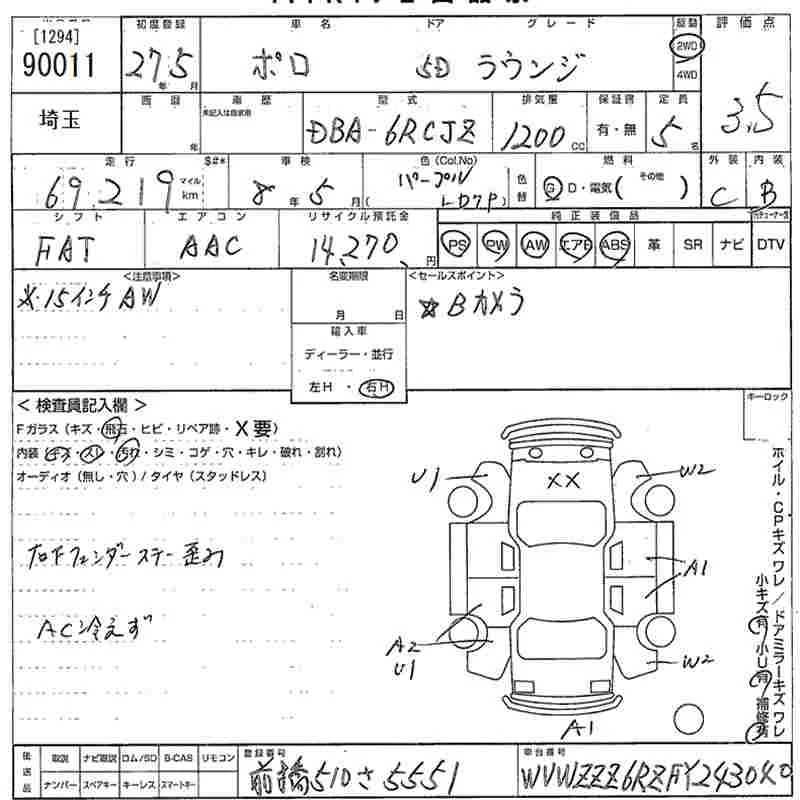 [1294]
90011
初度登録
27.5
年 月
車名
ポロ
ドア
5D
グレード
ラウンジ
駆動
2WD
4WD
評価点
3.5
埼玉
西暦
年
車歴
未記入は自家用
型式
DBA-6RCJZ
排気量
1200cc
保証書
有・無
定員
5名
走行
69,219
マイル
km
S#*
車検
8年5月
色(Col.No)
パープル
LD7P)
色替
燃料
G D・電気( その他 )
外装
C
内装
B
シフト
FAT
エアコン
AAC
リサイクル預託金
14,270円
純正装備品
PS PW AW エアB ABS 革 SR ナビ DTV
<注意事項>
※.15インチAW
名変期限
月 日
輸入車
ディーラー・並行
左H・右H
<セールスポイント>
☆Bカメラ
<検査員記入欄>
Fガラス(キズ・飛石・ヒビ・リペア跡・X要)
内装(キズ・スレ・汚れ・シミ・コゲ・穴・キレ・破れ・割れ)
オーディオ(無し・穴)/タイヤ(スタッドレス)
右Fフェンダーステー歪み
AC冷えず
キーロック
U1
XX
W2
A1
A2
U1
W2
A1
ホイル・CPキズ ワレ/ドアミラーキズ ワレ
小キズ有 小U有 補修有
後送品
取説 ナビ取説 ロム/SD B-CAS リモコン
ナンバー スペアキー キーレス スマートキー
登録番号
前橋510さ5551
車台番号
WVWZZZ6RZFY243040